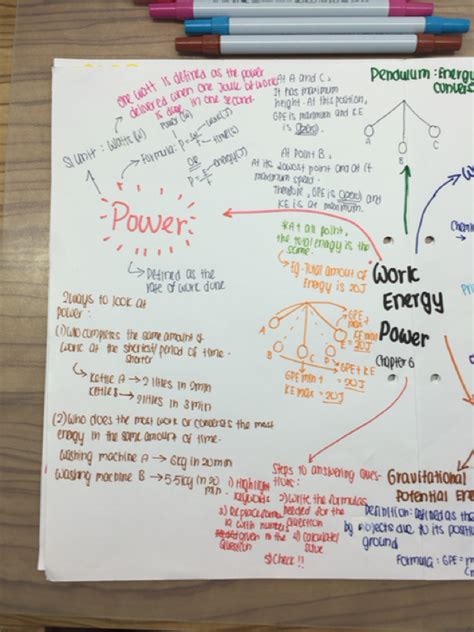 One watt is defined as the power
delivered when one joule of work
is done in one second.
SI Unit : Watts (W)
Power (W)
Formula : P = W → work (J)
t → time (s)
OR
P = E → energy (J)
t → time (s)
Power
Defined as the
rate of work done
At A and C,
It has maximum
height. At this position,
GPE is maximum and KE
is
At Point B,
At its lowest point and at it
maximum speed.
Therefore, GPE is
KE is at maximum.
*At all point,
the total energy is the
same.
Eg. Total amount of
Energy is 20J
GPE
max
KE
= 20J
A
B
C
D
GPE + KE
= 20J
GPE min +
KE max = 20J
Pendulum : Energy
convers
A
B
C
Work
Energy
Power
Chapter 6
2 ways to look at
power :
(1) Who completes the same amount of
work at the shortest/period of time.
shorter
Kettle A → 2 litres in 2min
Kettle B → 2 litres in 3 min
(2) Who does the most work or converts the most
energy in the same amount of time.
Washing machine A → 6kg in 20min
Washing machine B → 5.5kg in 20
min
Steps to answering Ques-
tions :
1) Highlight
keywords
2) Write the formulas
needed for the
question
3) Replace formu
la with numbers
given in the
question
4) Calculate/
solve
5) Check !!
Gravitational
Potential Ene
Definition : Defined as the
by objects due to its position
ground
Formula : GPE = m
Chemi